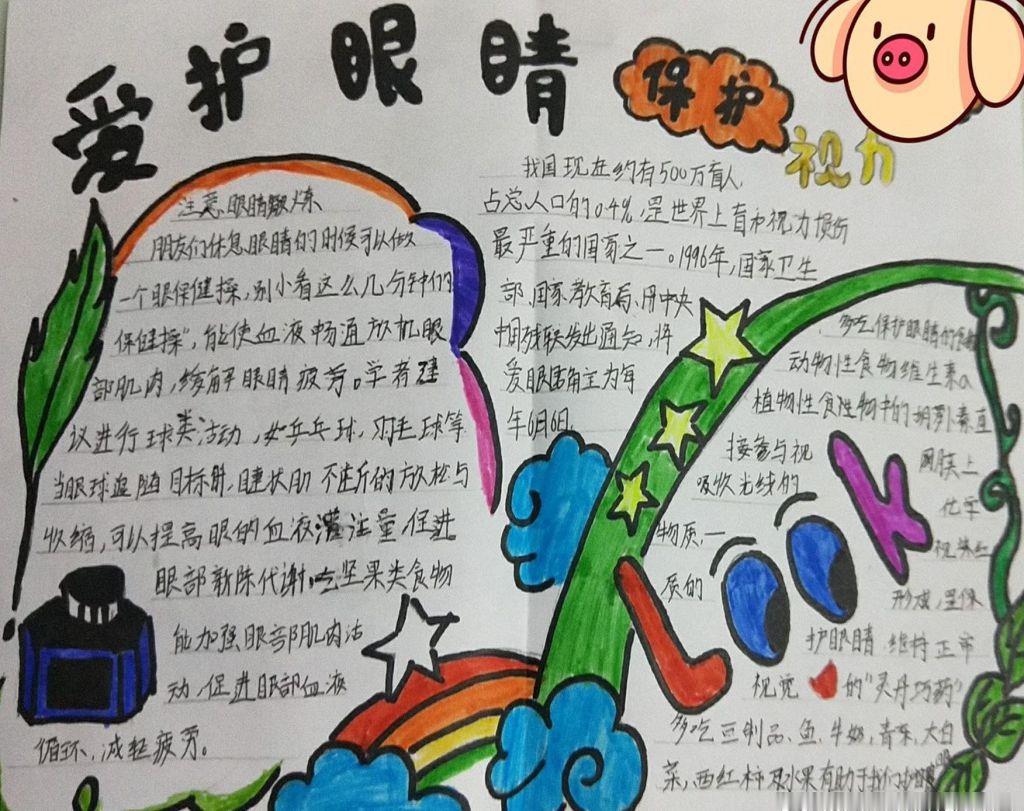 爱护眼睛
保护
视力
注意眼睛锻炼
朋友们休息眼睛的时候可以做
一个眼保健操,别小看这么几分钟的
保健操",能使血液畅通放机眼
部肌肉,缓解眼睛疲劳。学者建
议进行球类活动,如乒乓球,羽毛球等
当眼球追随目标时,睫状肌不断的放松与
收缩,可以提高眼的血液灌注量,促进
眼部新陈代谢。吃坚果类食物
能加强眼部肌肉活
动,促进眼部血液
循环,减轻疲劳。
我国现在约有500万盲人,
占总人口的0.4%,是世界上盲和视力损伤
最严重的国家之一。1996年,国家卫生
部、国家教育局、用中央
中国残联发出通知,将
爱眼日角主为年
年6月6日。
多吃保护眼睛的食物
动物性食物维生素a
植物性食性物中的胡萝卜素直
接参与视网膜上
吸收光线的化学
物质,一视紫红
质的形成,是保
护眼睛、维持正常
视觉的"灵丹巧药"
多吃豆制品、鱼、牛奶,青菜,大白
菜,西红柿及水果有助于我们